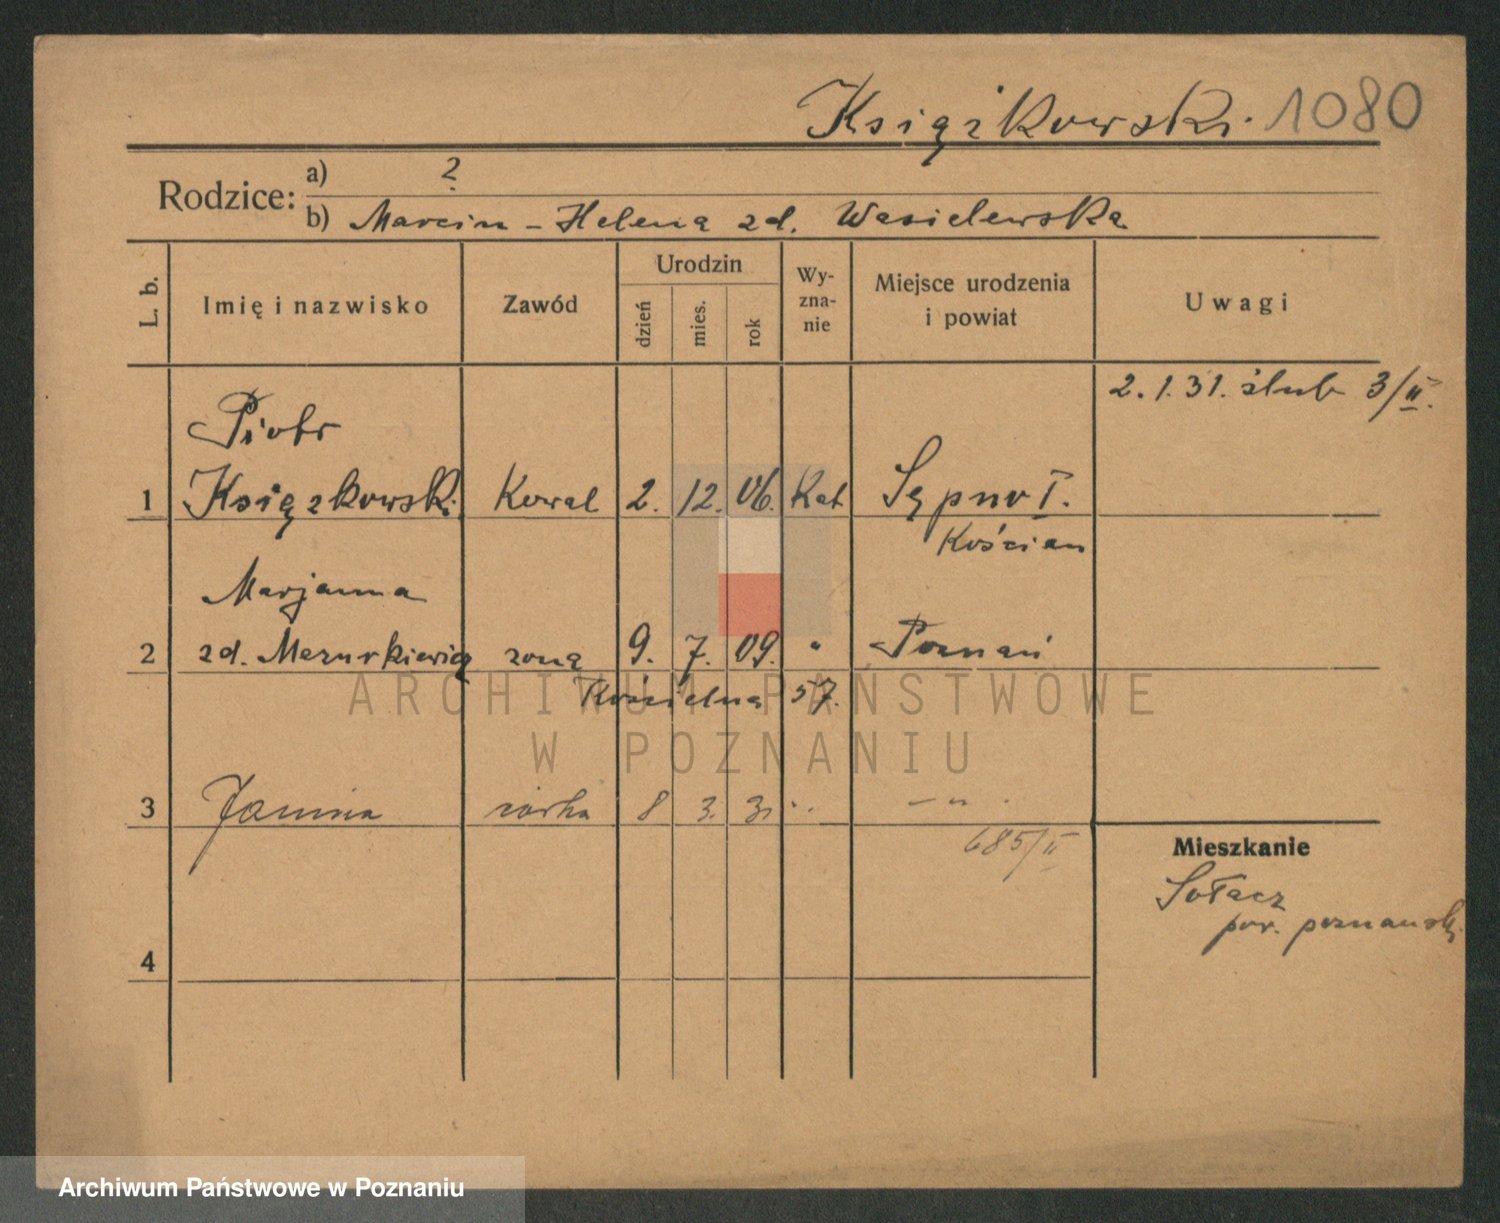 Książkowski. 1080
Rodzice: a) ?
b) Marcin - Helena zd. Wasielewska
L. b. Imię i nazwisko Zawód Urodzin dzień mies. rok Wyzna-nie Miejsce urodzenia i powiat Uwagi
2.1.31. ślub 3/II.
Piotr
1 Książkowski Kowal 2. 12. 06. Kat Sępno I.
Kościan
Marjanna
2 zd. Mazurkiewicz żona 9. 7. 09. " Poznań
Kościelna 57.
3 Janina córka 8 3. 31 " — " .
685/II
Mieszkanie
Sołacz
pow. poznański
4
ARCHIWUM PAŃSTWOWE
W POZNANIU
Archiwum Państwowe w Poznaniu